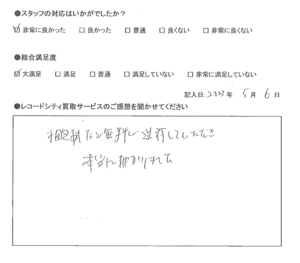 ●スタッフの対応はいかがでしたか？
☑非常に良かった □良かった □普通 □良くない □非常に良くない
●総合満足度
☑大満足 □満足 □普通 □満足していない □非常に満足していない
記入日:2023年 5月 6日
●レコードシティ買取サービスのご感想を聞かせてください
無料で送付していただき
本当に助かりました